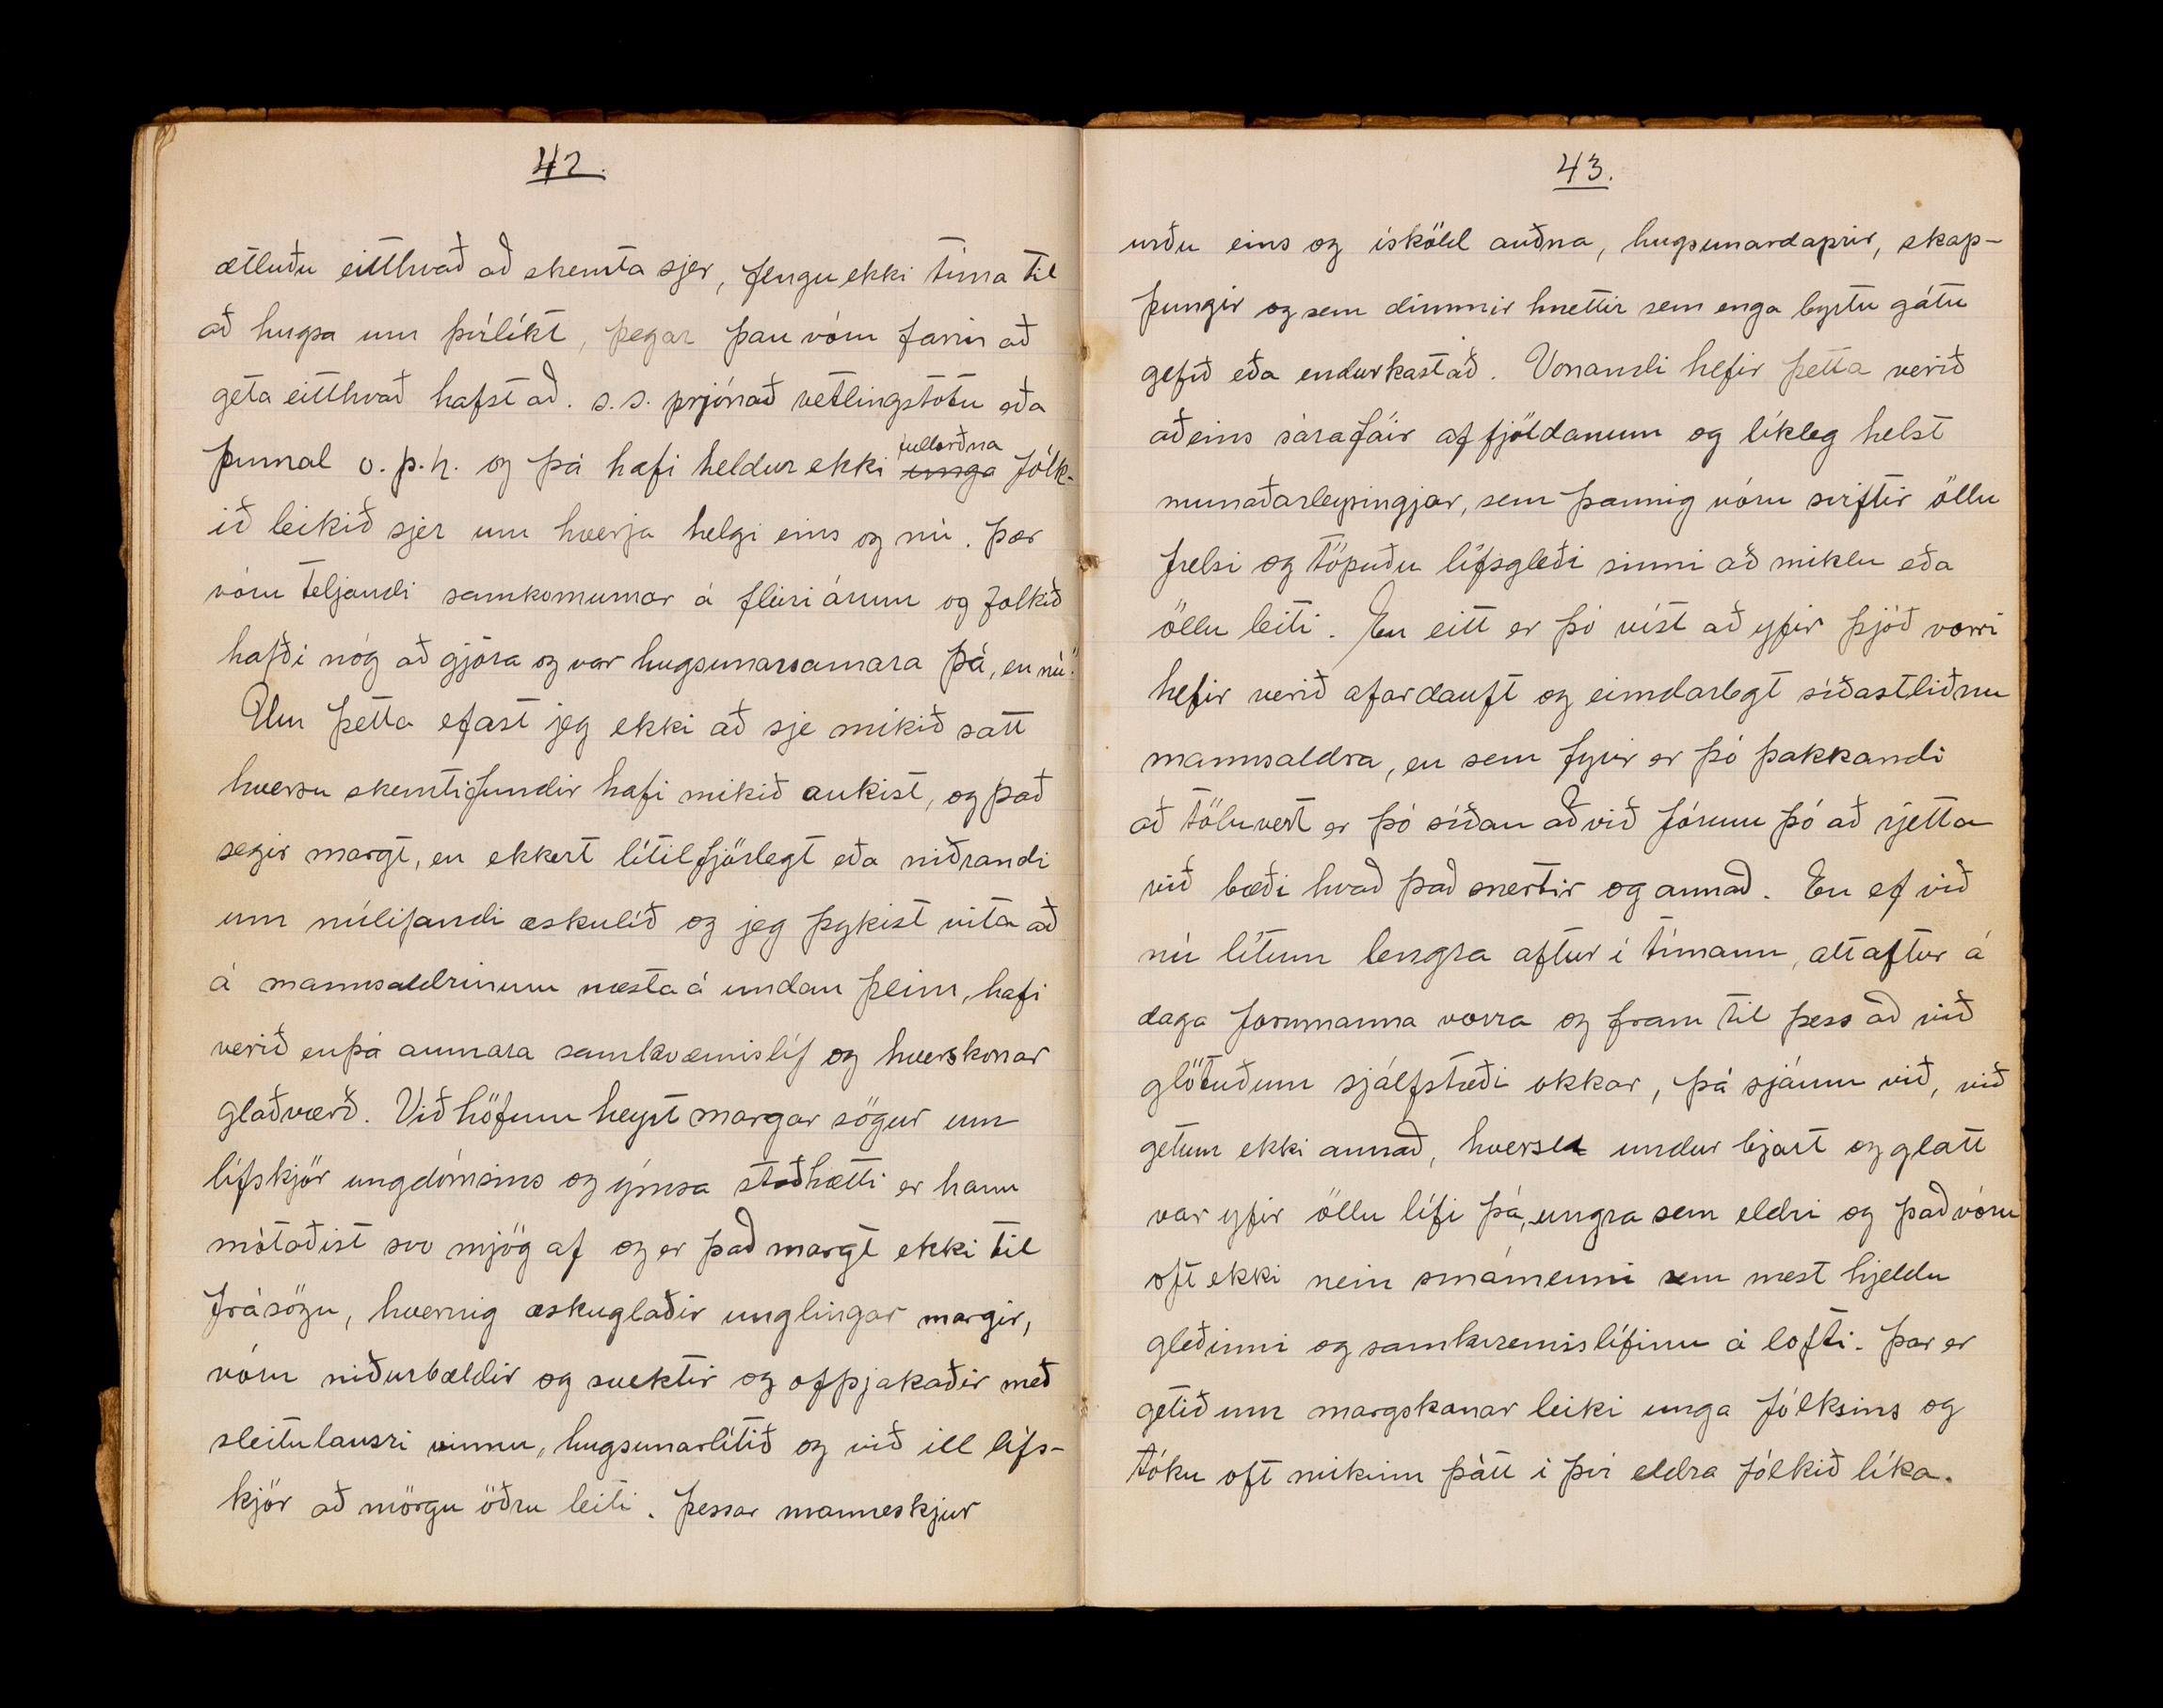 42.
ætluðu eitthvað að skemta sjer, fengu ekki tíma til
að hugsa um þvílíkt, þegar þau vóru farin að
geta eitthvað hafst að. s.s. prjónað vetlingstotu eða
þumal o.þ.h. og þá hafi heldur ekki fullorðna unga fólk-
ið leikið sjer um hverja helgi eins og nú. Þær
vóru teljandi samkomurnar á fleiri árum og fólkið
hafði nóg að gjöra og var hugsunarsamara þá, en nú."
Um þetta efast jeg ekki að sje mikið satt
hversu skemtifundir hafi mikið aukist, og það
segir margt, en ekkert lítilfjörlegt eða niðrandi
um núlifandi æskulíð og jeg þykist vita að
á mannsaldrinum næsta á undan þeim, hafi
verið enþá aumara samkvæmislíf og hverskonar
glaðværð. Við höfum heyrt margar sögur um
lífskjör ungdómsins og ýmsa staðhætti er hann
mótaðist svo mjög af og er það margt ekki til
frásögu, hvernig æskuglaðir unglingar margir,
vóru niðurbældir og svektir og ofþjakaðir með
sleitulausri vinnu, hugsunarlítið og við ill lífs-
kjör að mörgu öðru leiti. Þessar manneskjur
43.
urðu eins og ísköld auðna, hugsunardaprir, skap-
þungir og sem dimmir hnettir sem enga byrtu gátu
gefið eða endurkastað. Vonandi hefir þetta verið
aðeins sárafáir af fjöldanum og líkleg helst
munaðarleysingjar, sem þannig vóru sviftir öllu
frelsi og töpuðu lífsgleði sinni að miklu eða
öllu leiti. En eitt er þó víst að yfir þjóð vorri
hefir verið afardauft og eimdarlegt síðastliðnu
mannsaldra, en sem fyrir er þó þakkandi
að töluvert er þó síðan að við fórum þó að rjetta
við bæði hvað það snertir og annað. En ef við
nú lítum lengra aftur í tímann, alt aftur á
daga fornmanna vorra og fram til þess að við
glötuðum sjálfstæði okkar, þá sjáum við, við
getum ekki annað, hversu undur bjart og glatt
var yfir öllu lífi þá, ungra sem eldri og það vóru
oft ekki nein smámenni sem mest hjeldu
gleðinni og samkvæmislífinu á lofti. Þar er
getið um margskonar leiki unga fólksins og
tóku oft mikinn þátt í því eldra fólkið líka.